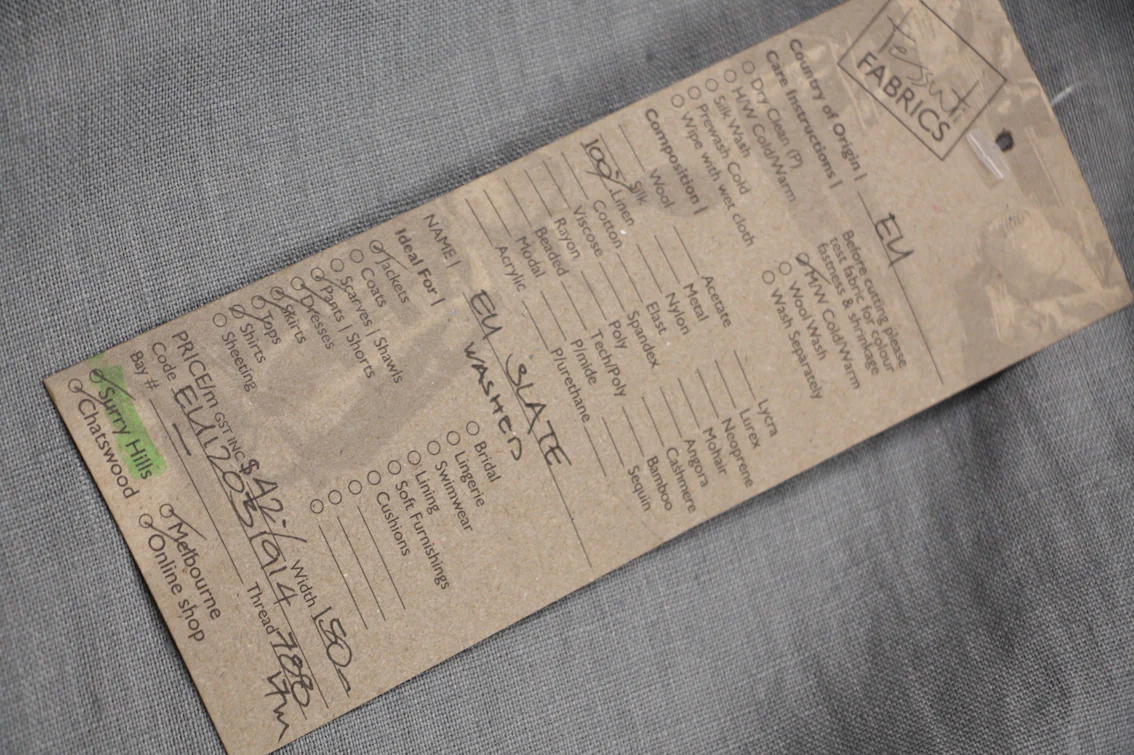 Tessuti
FABRICS
Country of Origin | EU
Care Instructions |
Before cutting please
test fabric for colour
fastness & shrinkage
Dry Clean (P)
H/W Cold/Warm
Silk Wash
Prewash Cold
Wipe with wet cloth
M/W Cold/Warm
Wool Wash
Wash Separately
Composition |
Wool
Silk
100% Linen
Cotton
Viscose
Rayon
Beaded
Modal
Acrylic
Acetate
Metal
Nylon
Elast
Spandex
Poly
Tech/Poly
P/mide
P/urethane
Lycra
Lurex
Neoprene
Mohair
Angora
Cashmere
Bamboo
Sequin
NAME | EU SLATE
WASHED
Ideal For |
Jackets
Coats
Scarves | Shawls
Pants | Shorts
Dresses
Skirts
Tops
Shirts
Sheeting
Bridal
Lingerie
Swimwear
Lining
Soft Furnishings
Cushions
PRICE/m GST INC $42.- Width 150
Code Thread
Bay #
Surry Hills
Chatswood
Melbourne
Online shop